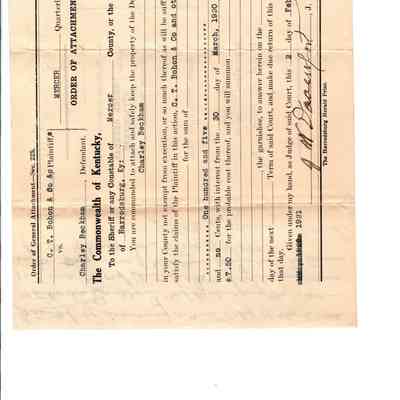 Order of General Attachment—Sec. 228.
MERCER Quarterly
C. T. Bohon & Co Ap Plaintiff
vs. ORDER OF ATTACHMENT
Charley Beckham Defendant,
The Commonwealth of Kentucky,
To the Sheriff or any Constable of Mercer County, or the
of Harrodsburg, Ky:
You are commanded to attach and safely keep the property of the De
Charley Beckham
in your County not exempt from execution, or so much thereof as will be suffi
satisfy the claims of the Plaintiff in this action, C. T. Bohon & Co and ot
for the sum of
One hundred and five
and no Cents, with interest from the 30 day of March, 1920
$7.50 for the probable cost thereof, and you will summon
the garnishee, to answer herein on the
day of the next Term of said Court, and make due return of this
that day.
Given under my hand, as Judge of said Court, this 2 day of Feb
1921
J.
The Harrodsburg Herald Print.